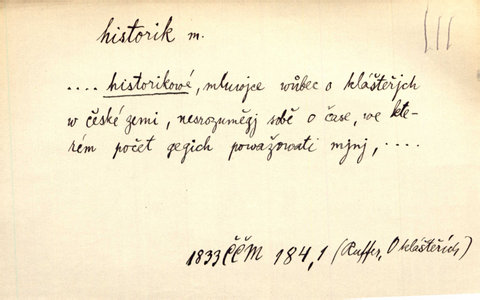 historik m.
III
.... historikowé, mluwjce wůbec o klášteřjch
w české zemi, nesrozumějj sobě o čase, we kte-
rém počet gegich powažowati mjnj, ....
1833 ČČM 184,1 (Ruffer, O klášteřích)